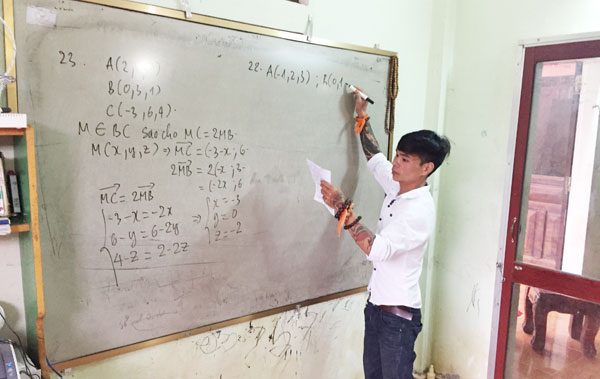 23.
A(2,
B(0,3,1)
C(-3,6,4).
M ∈ BC sao cho MC = 2MB.
M(x,y,z) ⇒ MC⃗ = (-3-x; 6-
2MB⃗ = 2(-x; 3-
= (-2x; 6
MC⃗ = 2MB⃗
{ -3-x = -2x
6-y = 6-2y
4-z = 2-2z
⇒ { x = -3
y = 0
z = -2
22. A(-1,2,3) ; B(0,1